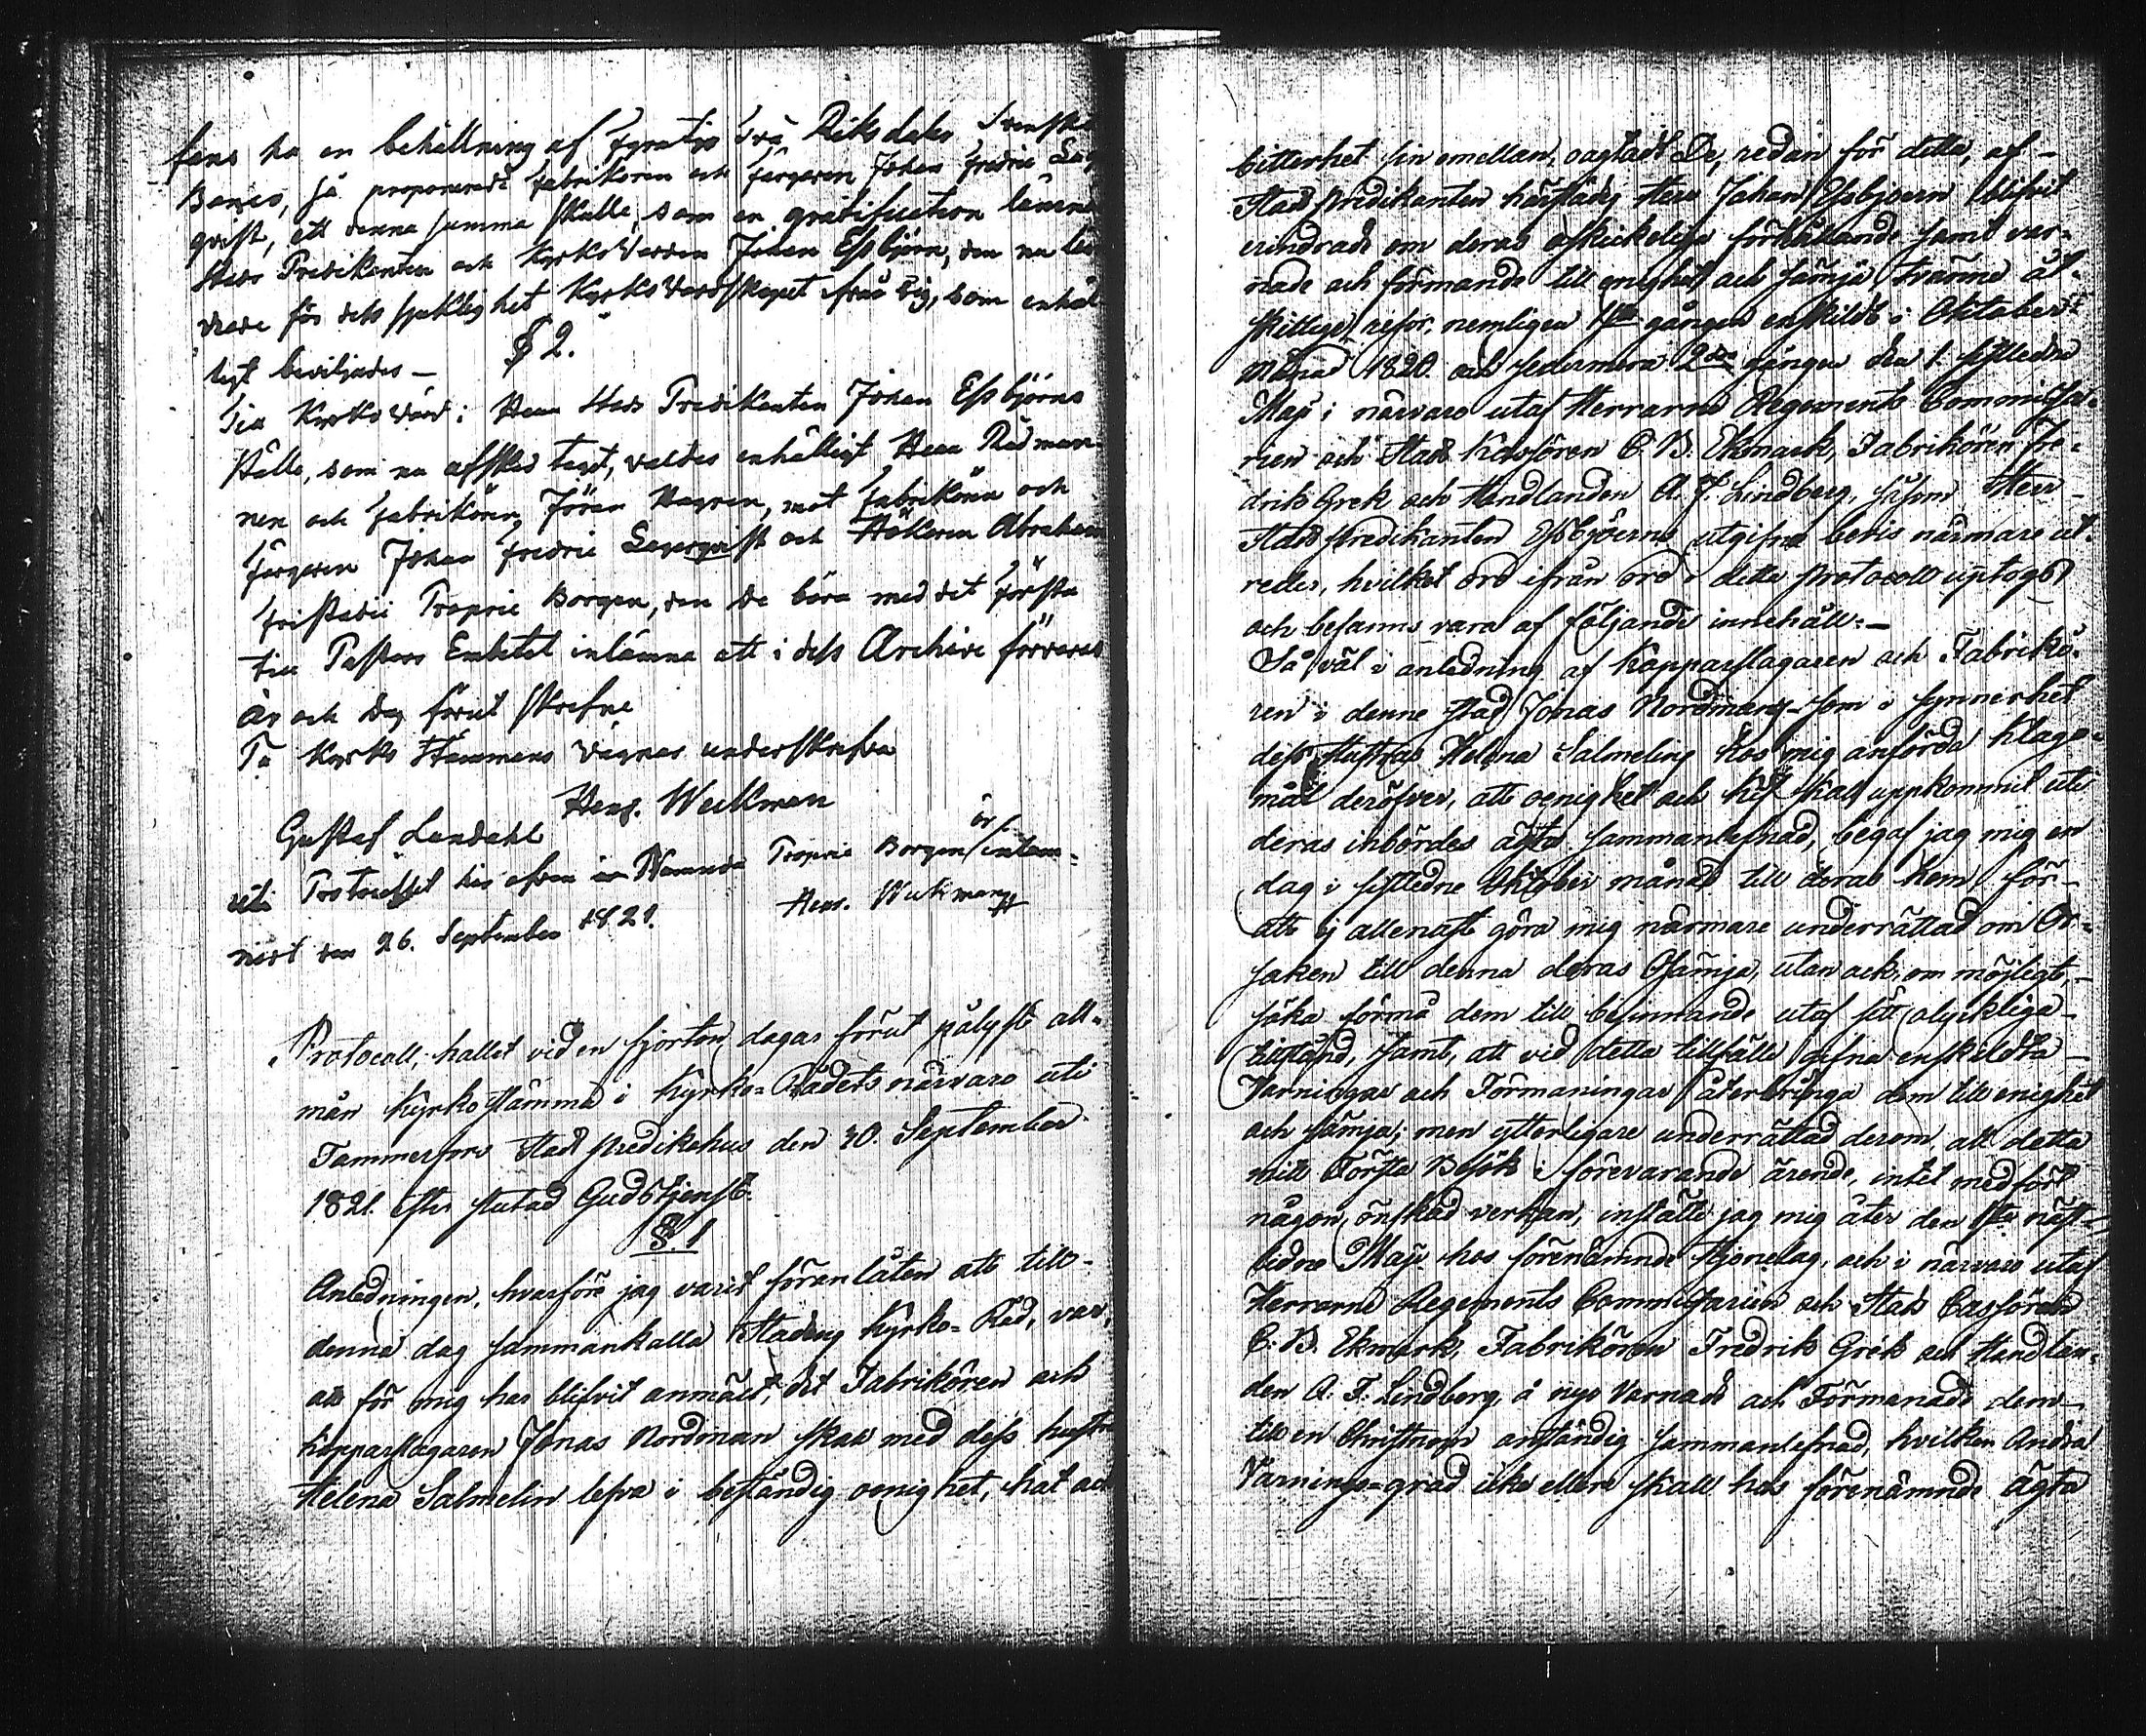 fens ha en behållning af fyratio två Riksdaler Svenska
Banco, så proponerade fabrikoren och färgaren Johan Fredric Lager
qvist, att denna summa skulle, som en gratification lämnas
Stads Predikanten och Kyrko Värden Johan Essbjörn, den nu
för dess sjuklighet Kyrko Värdskapet från sig, som enhäl
ligt beviljades —
§ 2.
Till Kyrko Värd i Herr Stads Predikanten Johan Essbjörns
ställe, som nu afsked tagit, valdes enhälligt Herr Rådman
nen och fabrikören Jöran Hagren, mot fabrikören och
färgaren Johan Fredric Lagerqvist och Hökaren Abraham
Proprie Borgen, den de böra med det första
till Pastors Embetet inlämna att i dess Archive förvaras
År och dag förut skrefne
På Kyrko Stämmans vägnar underskrifva
Henr. Wallman
Gustaf Landahl
uti Protocollet här ofvan Nämnda Proprie Borgen är inlem-
nad den 26. September 1821.
Henr.
Protocoll, hållet vid en fjorton dagar förut pålyst all-
män Kyrkostämma i Kyrko-Rådets närvaro uti
Tammerfors Stads predikohus den 30. September
1821. efter slutad Gudstjenst.
§. 1
Anledningen, hvarföre jag varit föranlåten att till-
denna dag sammankalla Stadens Kyrko-Råd, var,
att för mig har blifvit anmält, det Fabrikören och
kopparslagaren Jonas Nordman skall med dess hustru
Helena Salmelin lefva i beständig oenighet, hat och
bitterhet sin emellan, oagtadt De, redan för detta, af -
Stads predikanten härstädes Herr Johan Essbjoern blifvit
erindrade om deras oskickeliga förhållande samt var-
nade och förmanade till enighet och sämja tvänne åt-
skillige resor, nemligen 1sta gången enskildt i Oktober
månad 1820. och sedermera 2dra gången den 1. sistledne
Maji i närvaro utaf Herrarne Regements Commissa-
rien och Stads Kassören C. B. Ekmark, Fabrikören Fre-
drik Grek och Handlanden A. F. Lindberg, såsom Herr
Stads predikanten Essbjoerns utgifne bevis närmare ut-
redes, hvilket ord ifrån ord i detta protocoll uptogs
och befanns vara af följande innehåll: —
Så väl i anledning af Kopparslagaren och Fabrikö-
ren i denne stad Jonas Nordmans som i synnerhet
dess Hustrus Helena Salmelins hos mig anförda Klago-
mål deröfver, att oenighet och kif skall uppkommit uti
deras inbördes ägta sammanlefnad, begaf jag mig en
dag i sistledne Oktober månad till deras hem för-
att ej allenast göra mig närmare underrättad om Or-
saken till denna deras Osämja, utan ock, om möjligt, -
söka förmå dem till besinnande utaf sitt olyckliga -
tillstånd, samt, att vid detta tillfälle gifna enskildta -
Varningar och Förmaningar återbringa dem till enighet
och sämja; men ytterligare underrättad derom, att detta
mitt Första Besök i förevarande ärende, intet medfört
någon önskad verkan, inställte jag mig åter den 1sta näst-
ledne Maji hos förenämnde Hjonelag, och i närvaro utaf
Herrarne Regements Commissarien och Stads Cassören
C. B. Ekmark, Fabrikören Fredrik Grek och Handlan-
den A. F. Lindberg, å nyo Varnade och Förmanade dem -
till en Christnom anständig sammanlefnad, hvilken Andra
Varnings-grad icke ellere skall hos förenämnde ägta